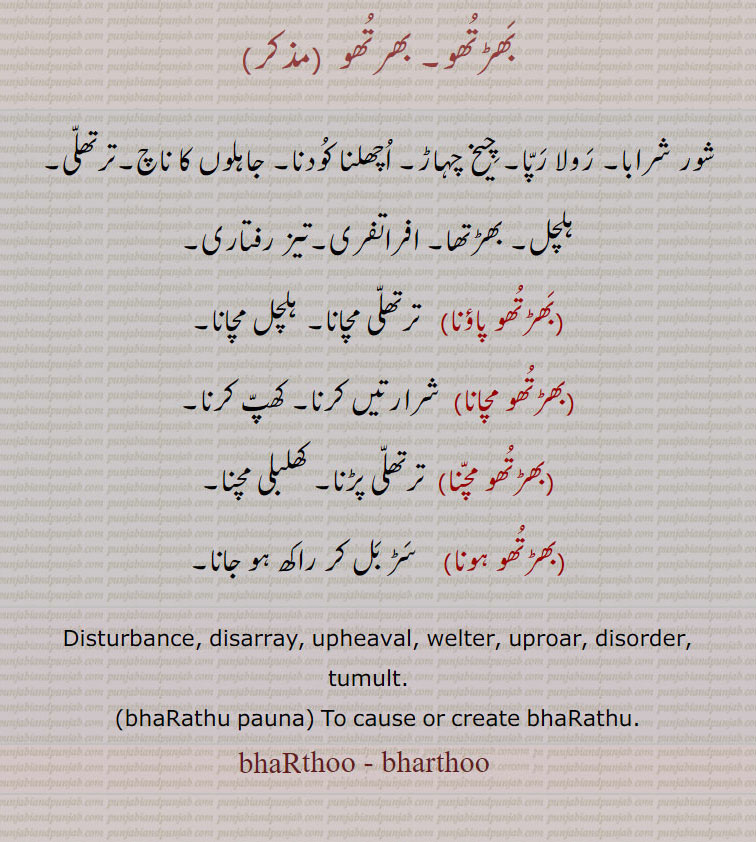 بَھڑتُھو۔ بھرتُھو (مذکر)
شور شرابا۔ رَولا رَپّا۔ چِیخ چہاڑ۔ اُچھلنا کُودنا۔ جاہلوں کا ناچ۔ ترتھلّی۔
ہلچل۔ بھڑتھا۔ افراتفری۔ تیز رفتاری۔
(بَھڑتُھو پاؤنا) ترتھلّی مچانا۔ ہلچل مچانا۔
(بھڑتُھو مچانا) شرارتیں کرنا۔ کھپّ کرنا۔
(بھڑتُھو مچّنا) ترتھلّی پڑنا۔ کھلبلی مچنا۔
(بھڑتُھو ہونا) سَڑ بَل کر راکھ ہو جانا۔
Disturbance, disarray, upheaval, welter, uproar, disorder,
tumult.
(bhaRathu pauna) To cause or create bhaRathu.
bhaRthoo - bharthoo